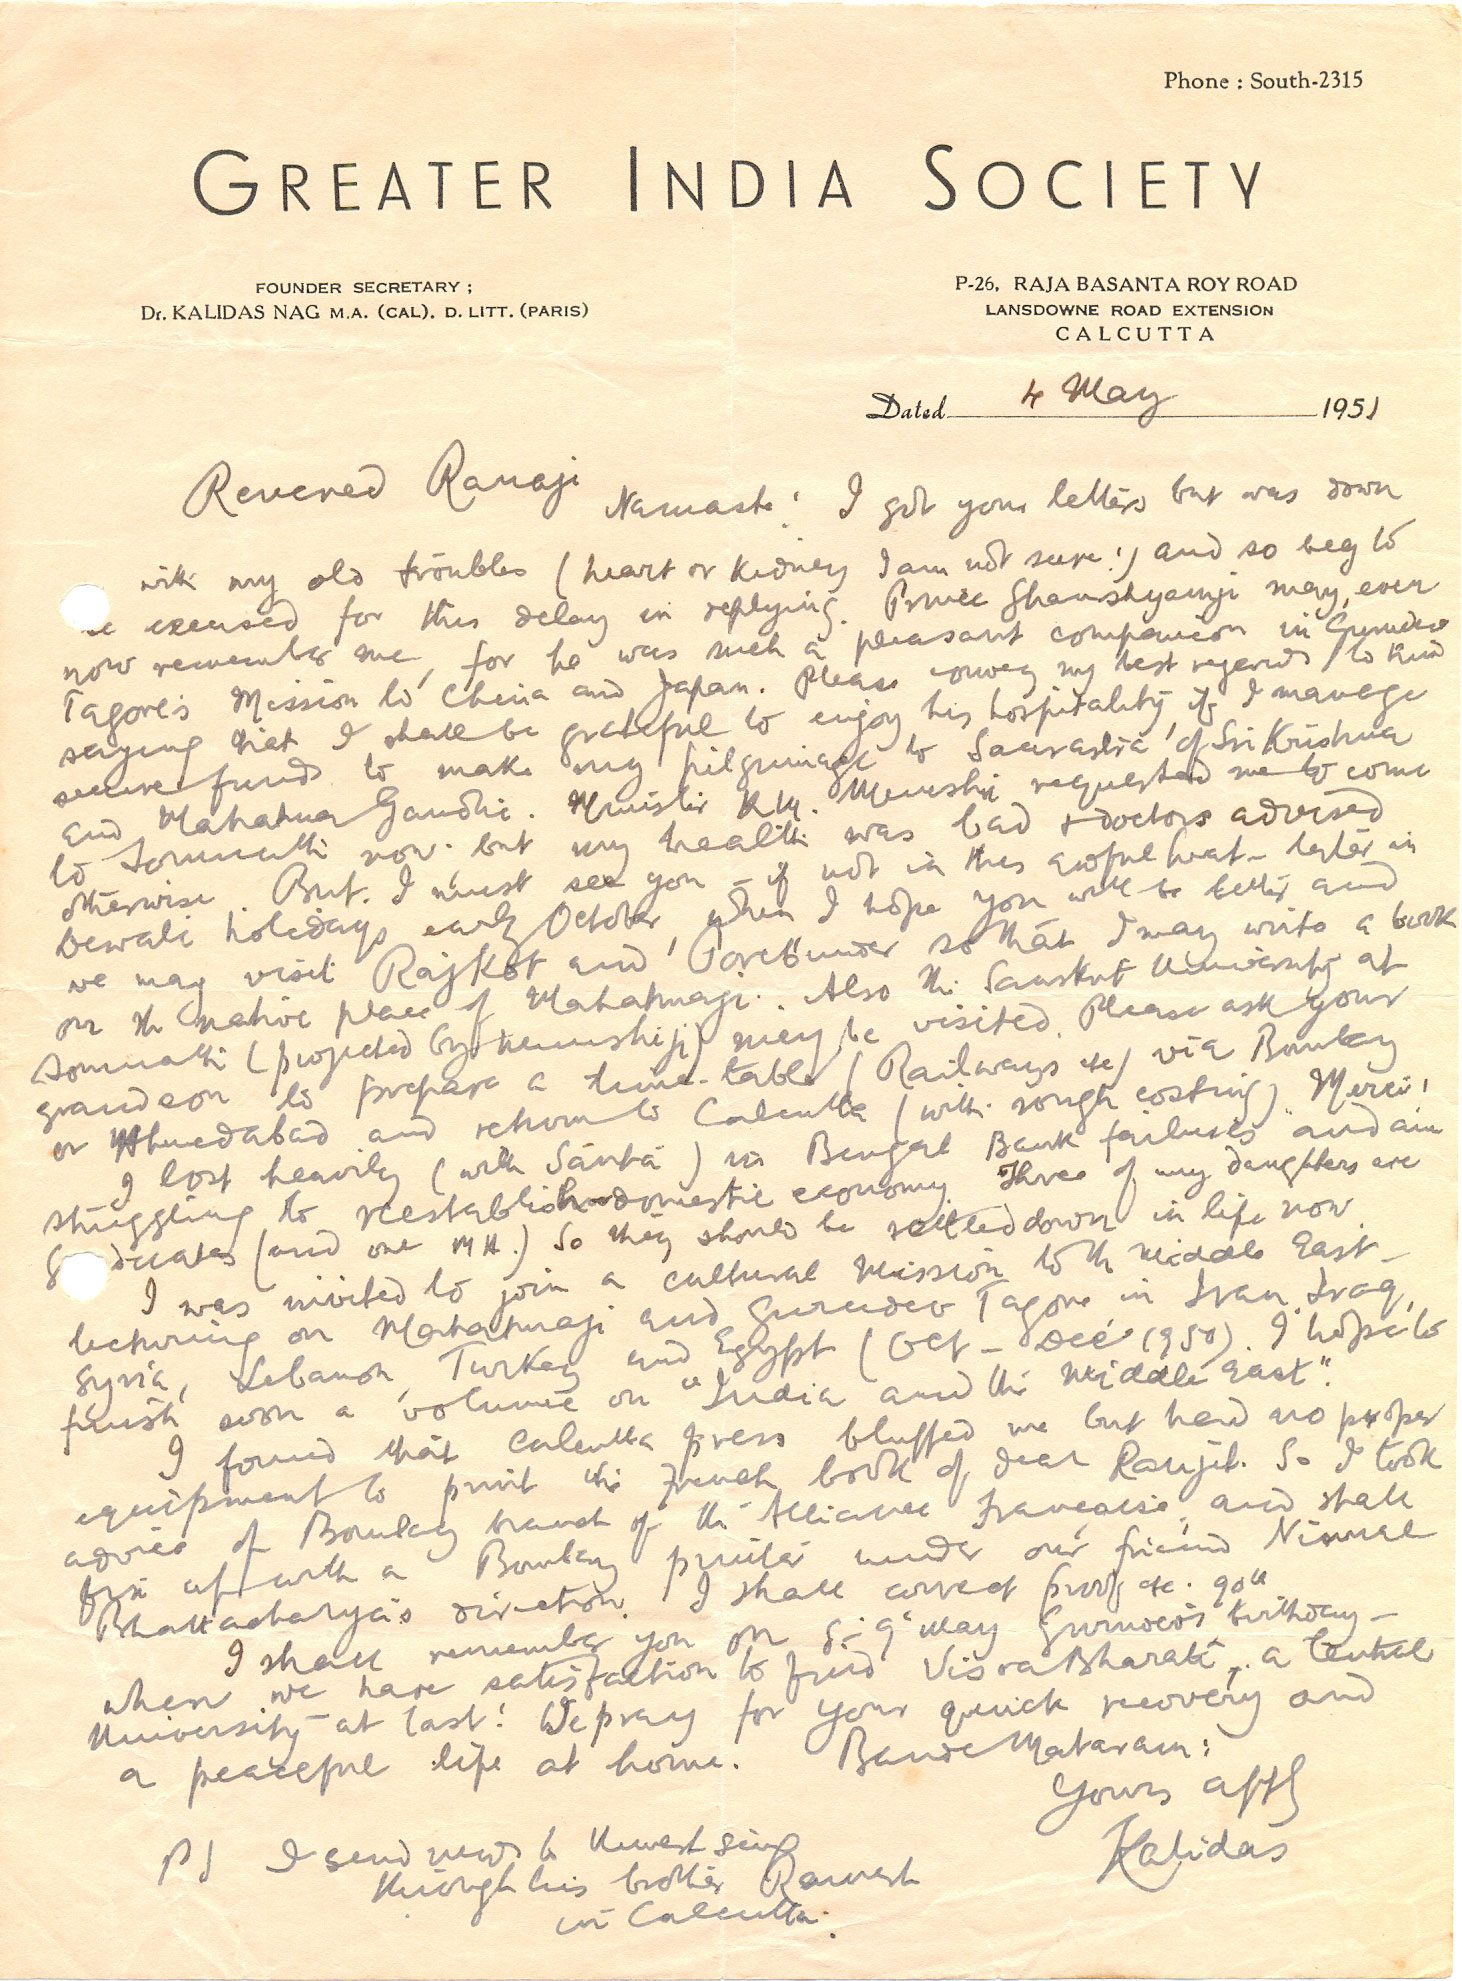 Phone : South-2315
GREATER INDIA SOCIETY
FOUNDER SECRETARY ;
Dr. KALIDAS NAG M.A. (CAL). D. LITT. (PARIS)
P-26, RAJA BASANTA ROY ROAD
LANSDOWNE ROAD EXTENSION
CALCUTTA
Dated 4 May 1951
Revered Ranaji
Namaste! I got your letters but was down
with my old troubles (heart or kidney I am not sure!) and so beg to
be excused for this delay in replying. Prince Ghanshyamji may even
now remember me, for he was such a pleasant companion in Gurudev
Tagore's Mission to China and Japan. Please convey my best regards to him
saying that I shall be grateful to enjoy his hospitality if I manage
secure funds to make my pilgrimage to Saurastra of Sri Krishna
and Mahatma Gandhi. Minister K.M. Munshi requested me to come
to Somnath now but my health was bad & doctors advised
otherwise. But I must see you - if not in this awful heat - later in
Dewali holidays early October, when I hope you will be better and
we may visit Rajkot and Porebunder so that I may write a book
on the native place of Mahatmaji. Also the Sanskrit University at
Somnath (projected by Munshiji) may be visited. Please ask your
grandson to prepare a time-table (Railways etc) via Bombay
or Ahmedabad and return to Calcutta (with rough costing) Merci!
I lost heavily (with Santa) in Bengal Bank failures and am
struggling to reestablish domestic economy. Three of my daughters are
graduates (and one MA.) So they should be settled down in life now.
I was invited to join a cultural mission to the Middle East -
lecturing on Mahatmaji and Gurudev Tagore in Iran, Iraq,
Syria, Lebanon, Turkey and Egypt (Oct - Dec 1950). I hope to
finish soon a volume on "India and the Middle East".
I found that Calcutta press bluffed me but had no proper
equipment to print the French book of dear Ranjit. So I took
advice of Bombay branch of the Alliance Francaise and shall
fix up with a Bombay printer under our friend Nirmal
Bhattacharya's direction. I shall correct proof etc.
I shall remember you on 8-9 May Gurudev's 90th birthday -
when we have satisfaction to find Visva Bharati, a Central
University - at last! We pray for your quick recovery and
a peaceful life at home. Bande Mataram!
Yours affly
Kalidas
PS I send news to
through his brother
in Calcutta.